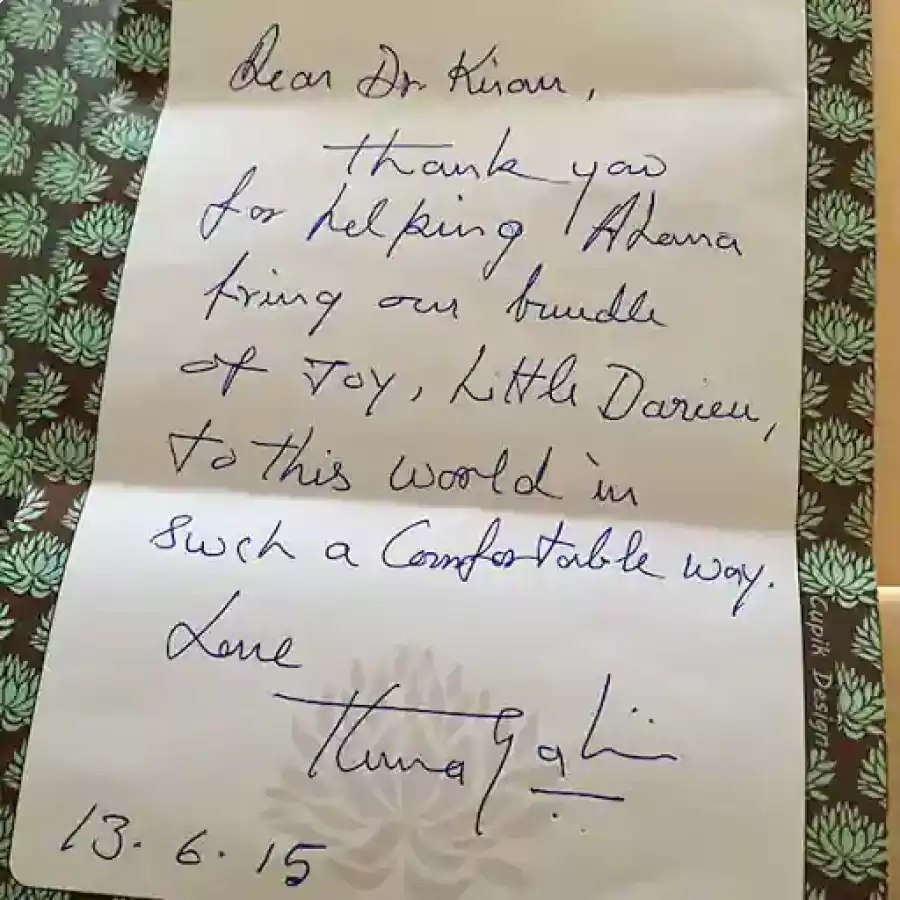 Dear Dr Kiran,
Thank you
for helping Ahana
bring our bundle
of Joy, Little Darien,
to this world in
such a Comfortable way.
Love
13.6.15
Cupik Design